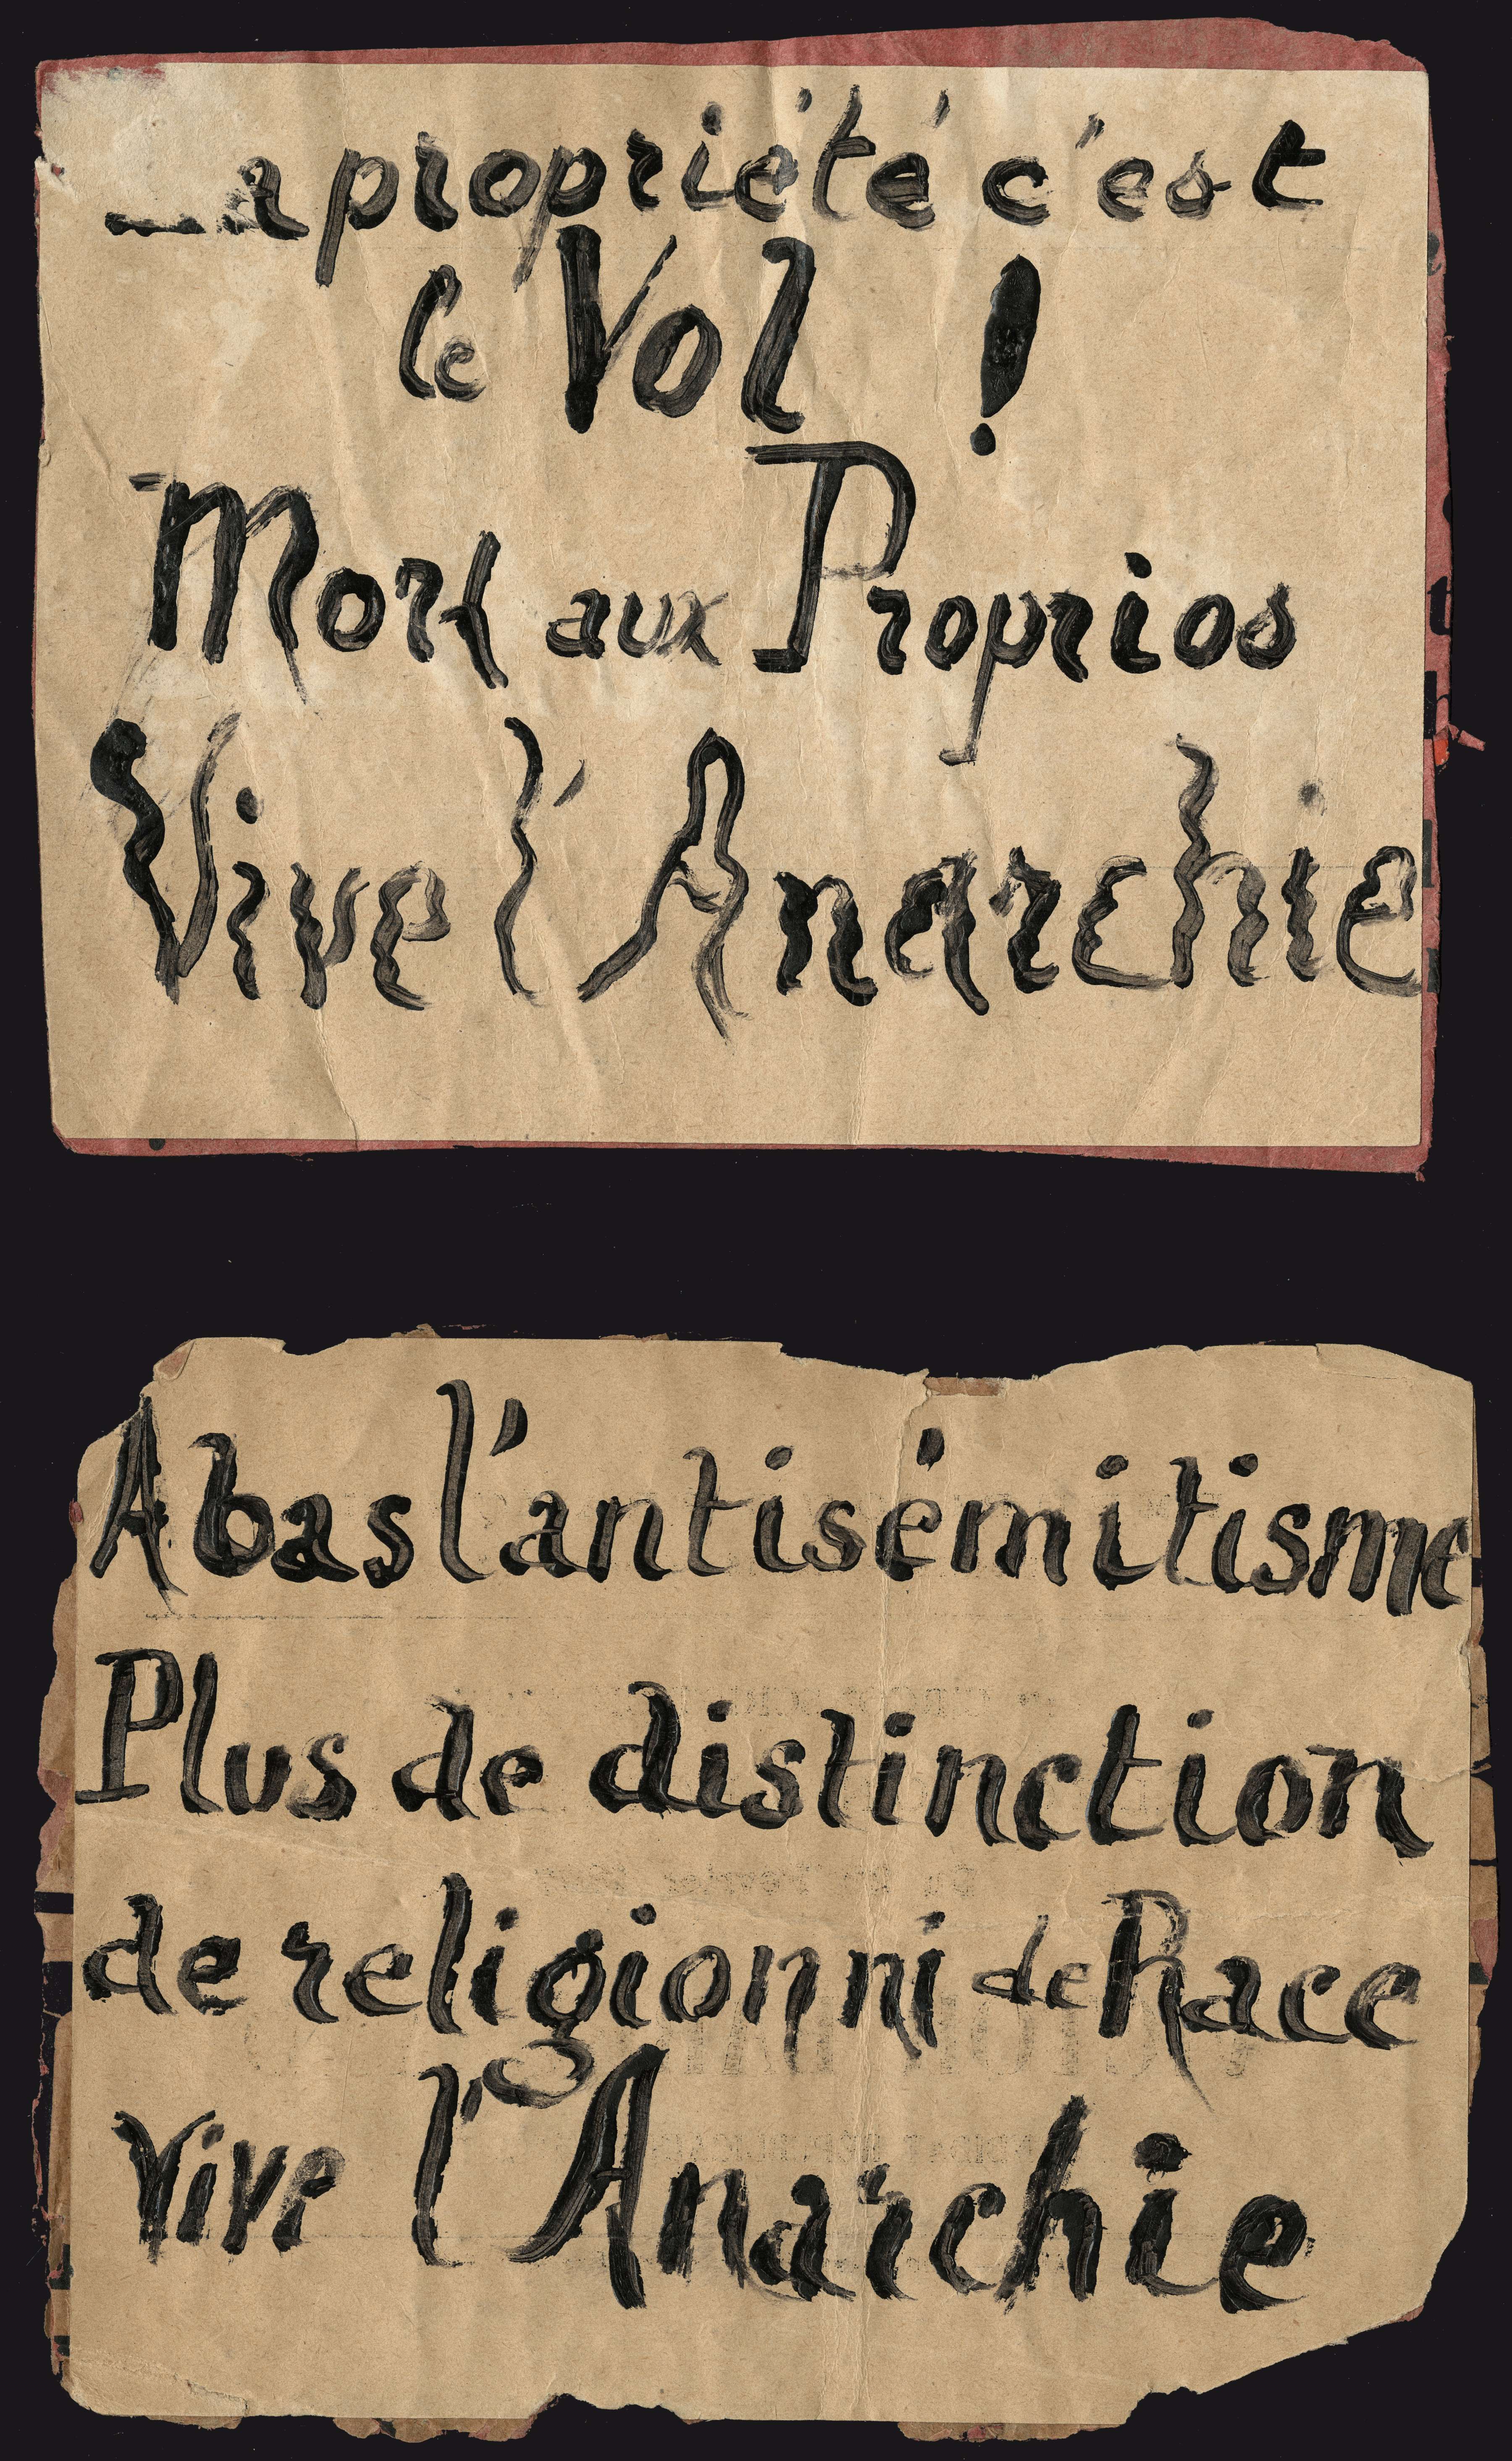 La propriété c'est
le Vol !
Mort aux Proprios
Vive l'Anarchie
A bas l'antisémitisme
Plus de distinction
de religion ni de Race
Vive l'Anarchie